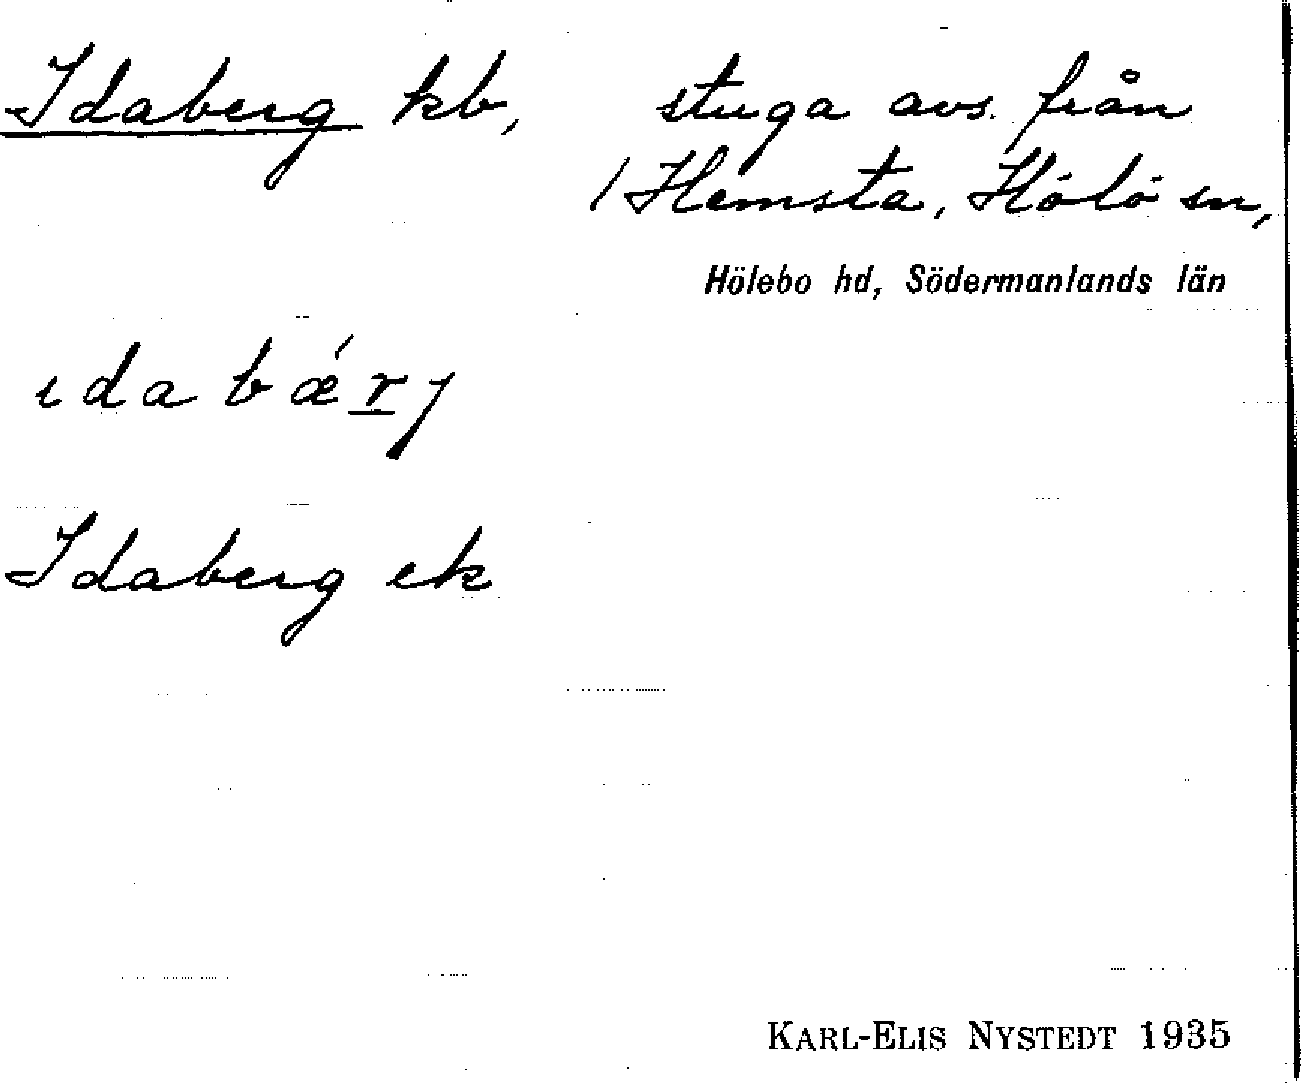 Idaberg kb, stuga avs. från
/ Hemsta, Hölö sn,
Hölebo hd, Södermanlands län
ıdabǽrj
Idaberg ek
KARL-ELIS NYSTEDT 1935